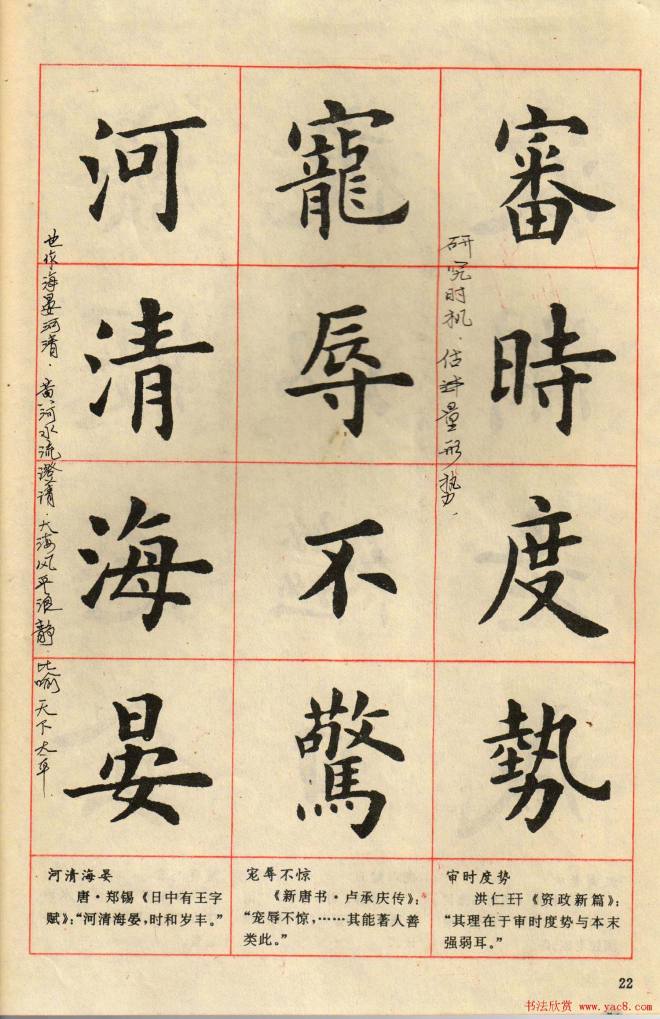 審時度勢
研究时机.估量形势.
寵辱不驚
河清海晏
也作海晏河清.黄河水流澄清.大海风平浪静.比喻天下太平.
河清海晏
唐·郑锡《日中有王字
赋》:“河清海晏,时和岁丰。”
宠辱不惊
《新唐书·卢承庆传》:
“宠辱不惊,……其能著人善
类此。”
审时度势
洪仁玕《资政新篇》:
“其理在于审时度势与本末
强弱耳。”
22
书法欣赏 www.yac8.com